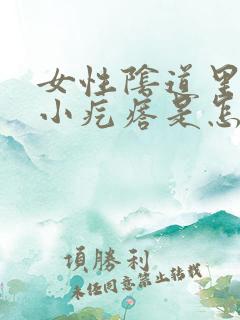 女性陰道里
小疙瘩是怎
項勝利
未经同意禁止转载